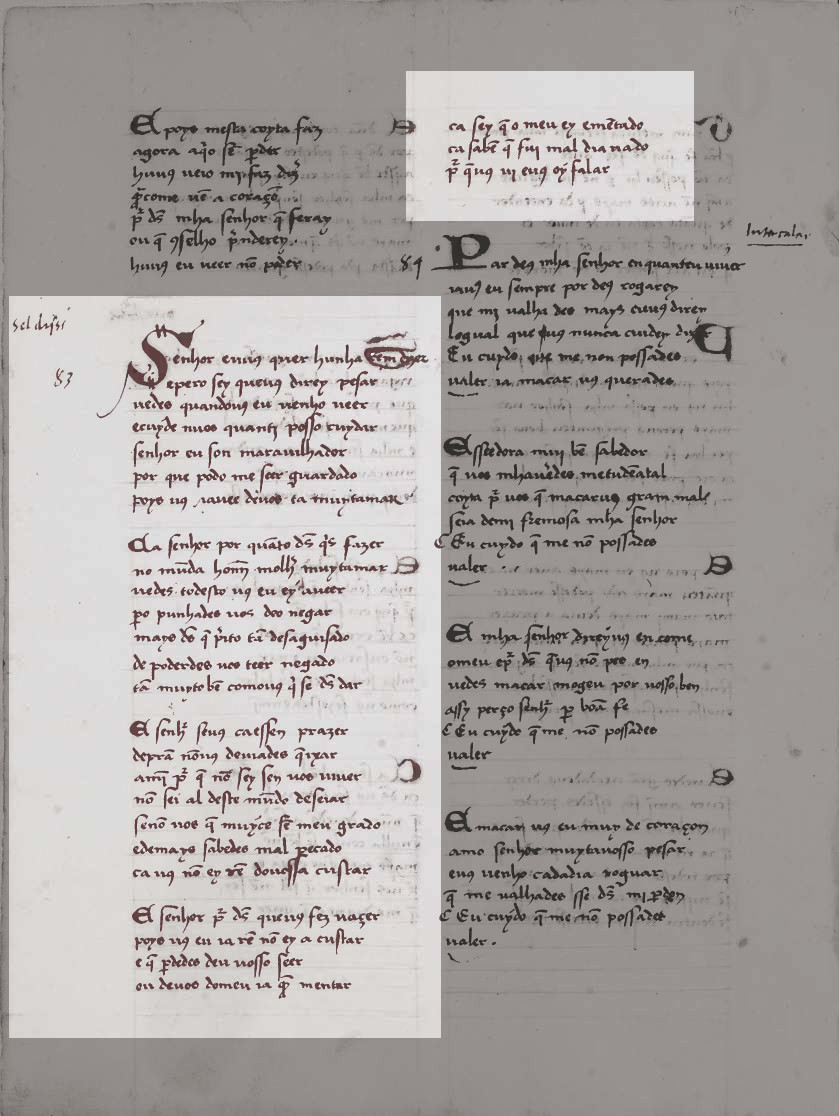 E poys mesta coyta faz
agora aq̃o sẽ p̃der
huus ueio mi faz dz̃
q̃ come uẽ a coraçõ
p̃ ds̃ mha senhor q̃ seray
ou q̃ ꝯselho p̃nderey
huus eu ueer nõ poder
83
Senhor euus quer hunha rem dizer
e pero sey queuus direy pesar
uedes quandouus eu uenho ueer
ecuyde nuos quanti posso cuydar
senhor eu son marauilhador
por que podo me seer guardado
poys uus auee deuos ta muytamar
Ca senhor por quãto ds̃ q̃s fazer
no mũda homẽ molh̃ muytamar
uedes todesto uus eu ey aueer
p̃o punhades uos deo negar
mays ds̃ q̃ p̃ito tã desaguisado
de poderdes uos teer negado
tã muyto bẽ comouus q̃ se ds̃ dar
E senh̃ seuus caessen prazer
deprã nõuus deuiades q̃ixar
amĩ p̃ q̃ nõ sey sen uos uiuer
nõ sei al deste mũdo deseiar
senõ uos q̃ muyce sẽ meu grado
edemays sabedes mal pecado
ca uus nõ ey rẽ douossa custar
E senhor p̃ ds̃ queuus fez naçer
poys uus eu ia rẽ nõ ey a custar
e q̃ p̃dedes deu uosso seer
ou deuos domeu ia q̃ mentar
ca sey q̃ o meu ey emẽtado
ca sabẽ q̃ fui mal dia nado
p̃ q̃uus ui euus oy falar
84
Par deus mha senhor enquanteu uiuer
iauus eu sempre por deus rogarey
que mi ualha des mays euus direy
logual que uus nunca cuidey dizer
Eu cuydo que me non possades
ualer ia macar uus querades
Essedora mui bẽ sabedor
q̃ uos mhauedes metudẽatal
coyta p̃ uos q̃ macaruus gram mal
seia demi fremosa mha senhor
Eu cuydo q̃ me nõ possades
ualer
E mha senhor direyuus en come
omeu ep̃ ds̃ q̃uus nõ pes en
uedes macar mogeu por uosso ben
assy perço senh̃ p̃ boã fe
Eu cuydo q̃ me nõ possades
ualer
E macar uus eu muy de coraçon
amo senhor muytauosso pesar
euus uenho cadadia roguar
q̃ me ualhades sse ds̃ mi p̃don
Eu cuydo q̃ me nõ possades
ualer.